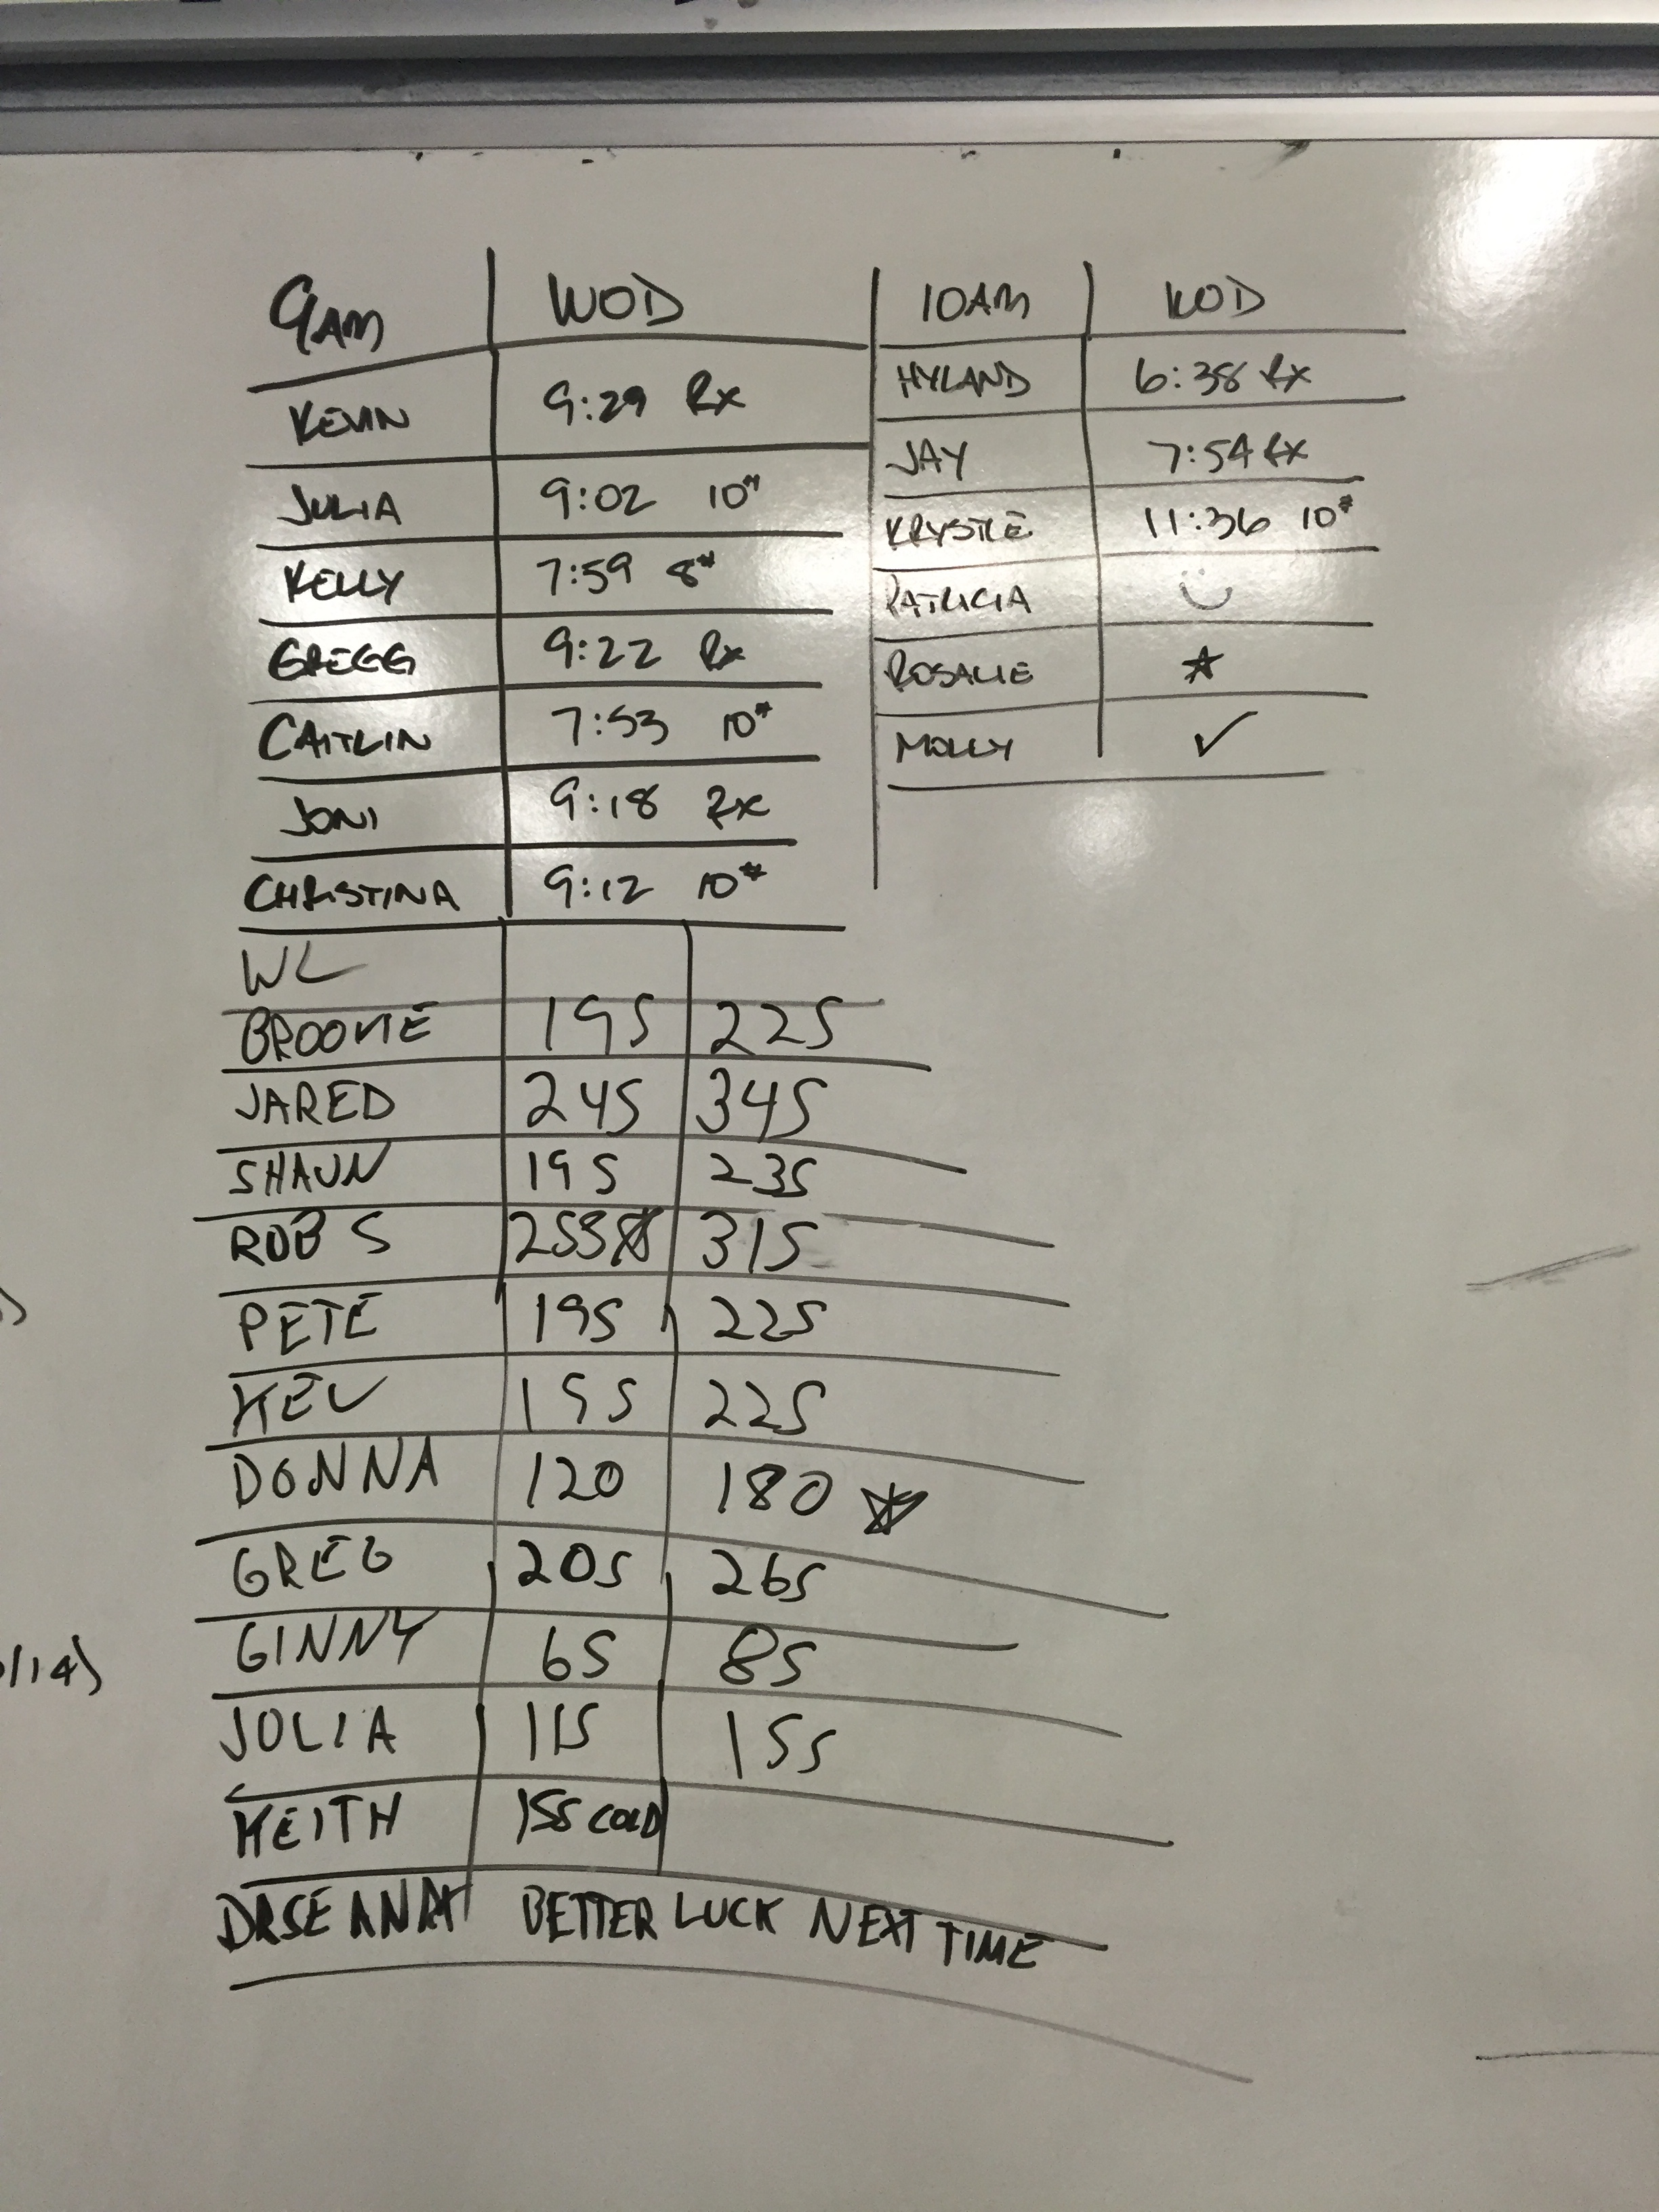 9AM WOD
KEVIN 9:29 Rx
JULIA 9:02 10#
KELLY 7:59 8#
GREGG 9:22 Rx
CAITLIN 7:53 10#
JONI 9:18 Rx
CHRISTINA 9:12 10#
10AM WOD
HYLAND 6:38 Rx
JAY 7:54 Rx
KRYSTLE 11:36 10#
PATRICIA
ROSALIE
MOLLY ✓
WL
BROOKE 195 225
JARED 245 345
SHAUN 195 235
ROB S 315
PETE 195 225
KEV 195 225
DONNA 120 180
GREG 205 265
GINNY 65 85
JULIA 115 155
KEITH 155 COLD
BETTER LUCK NEXT TIME
/14)